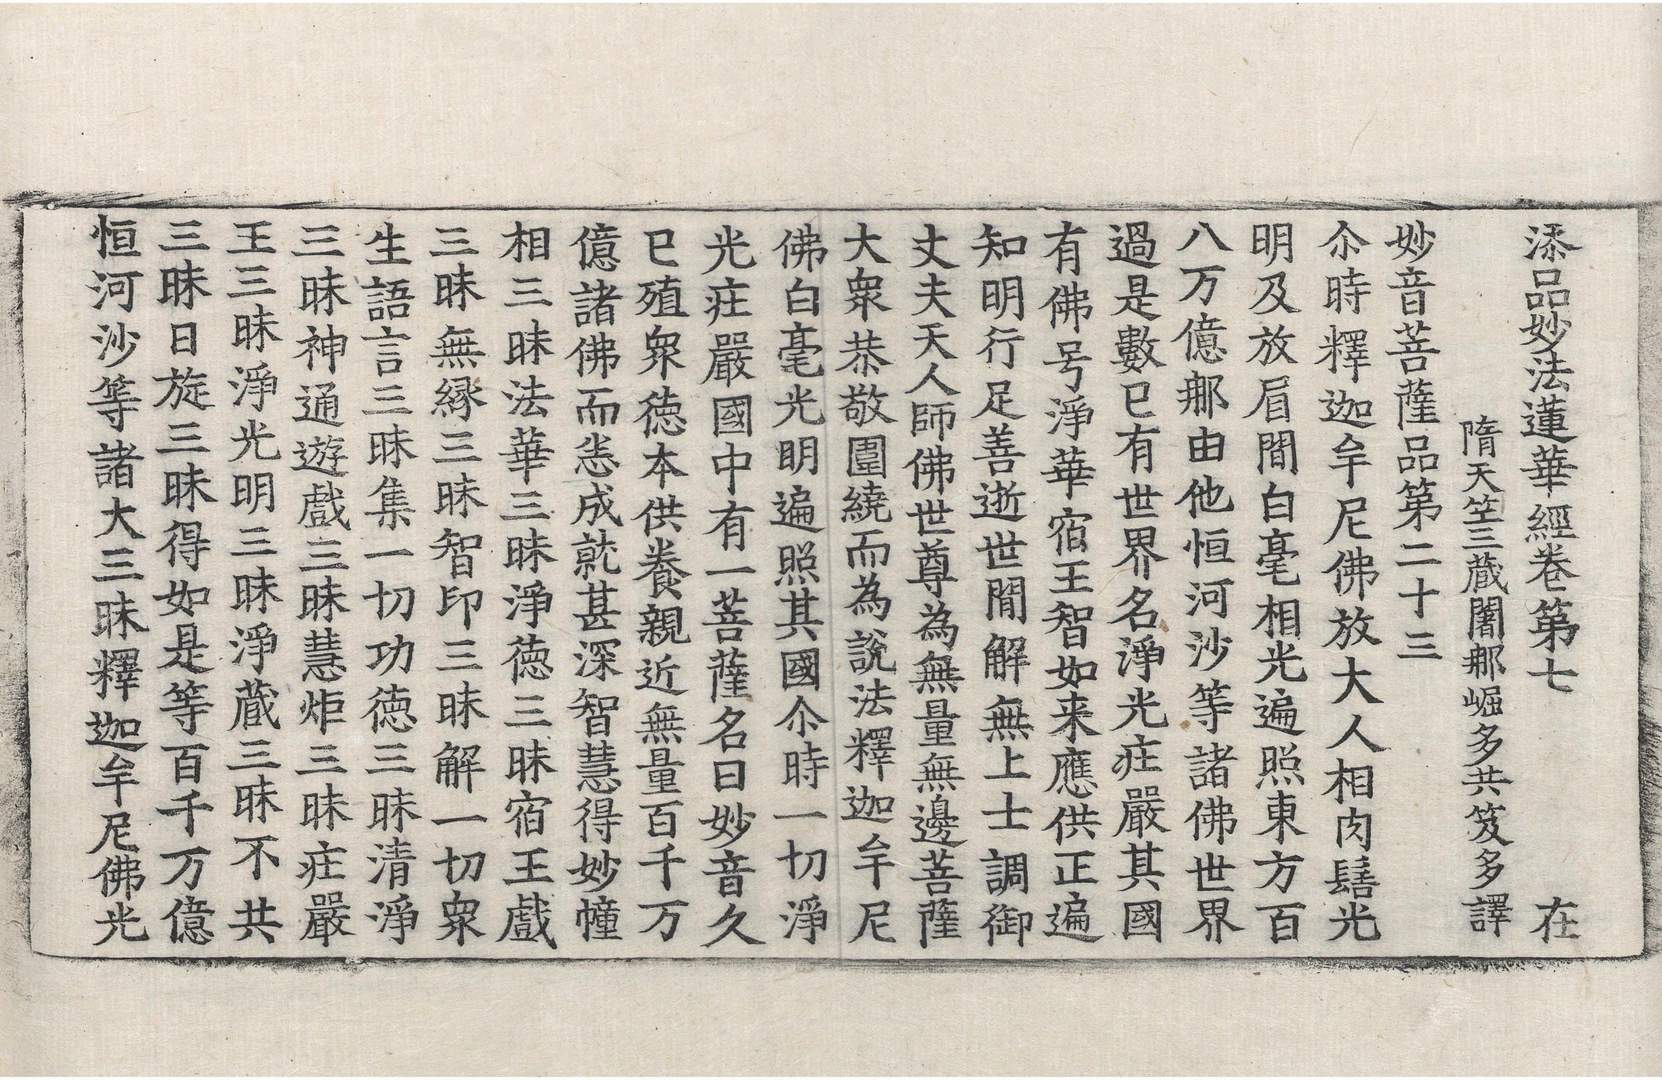 添品妙法蓮華經卷第七 在
隋天竺三蔵闍𨚗崛多共笈多譯
妙音菩薩品第二十三
尒時釋迦牟尼佛放大人相肉髻光
明及放眉間白毫相光遍照東方百
八万億𨚗由他恒河沙等諸佛世界
過是數已有世界名淨光㽵嚴其國
有佛号淨華宿王智如来應供正遍
知明行足善逝世間解無上士調御
丈夫天人師佛世尊為無量無邊菩薩
大衆恭敬圍繞而為說法釋迦牟尼
佛白毫光明遍照其國尒時一切淨
光㽵嚴國中有一菩薩名曰妙音久
已殖衆徳本供養親近無量百千万
億諸佛而悉成就甚深智慧得妙幢
相三昧法華三昧淨徳三昧宿王戲
三昧無縁三昧智印三昧解一切衆
生語言三昧集一切功徳三昧清淨
三昧神通遊戲三昧慧炬三昧㽵嚴
王三昧淨光明三昧淨蔵三昧不共
三昧日旋三昧得如是等百千万億
恒河沙等諸大三昧釋迦牟尼佛光